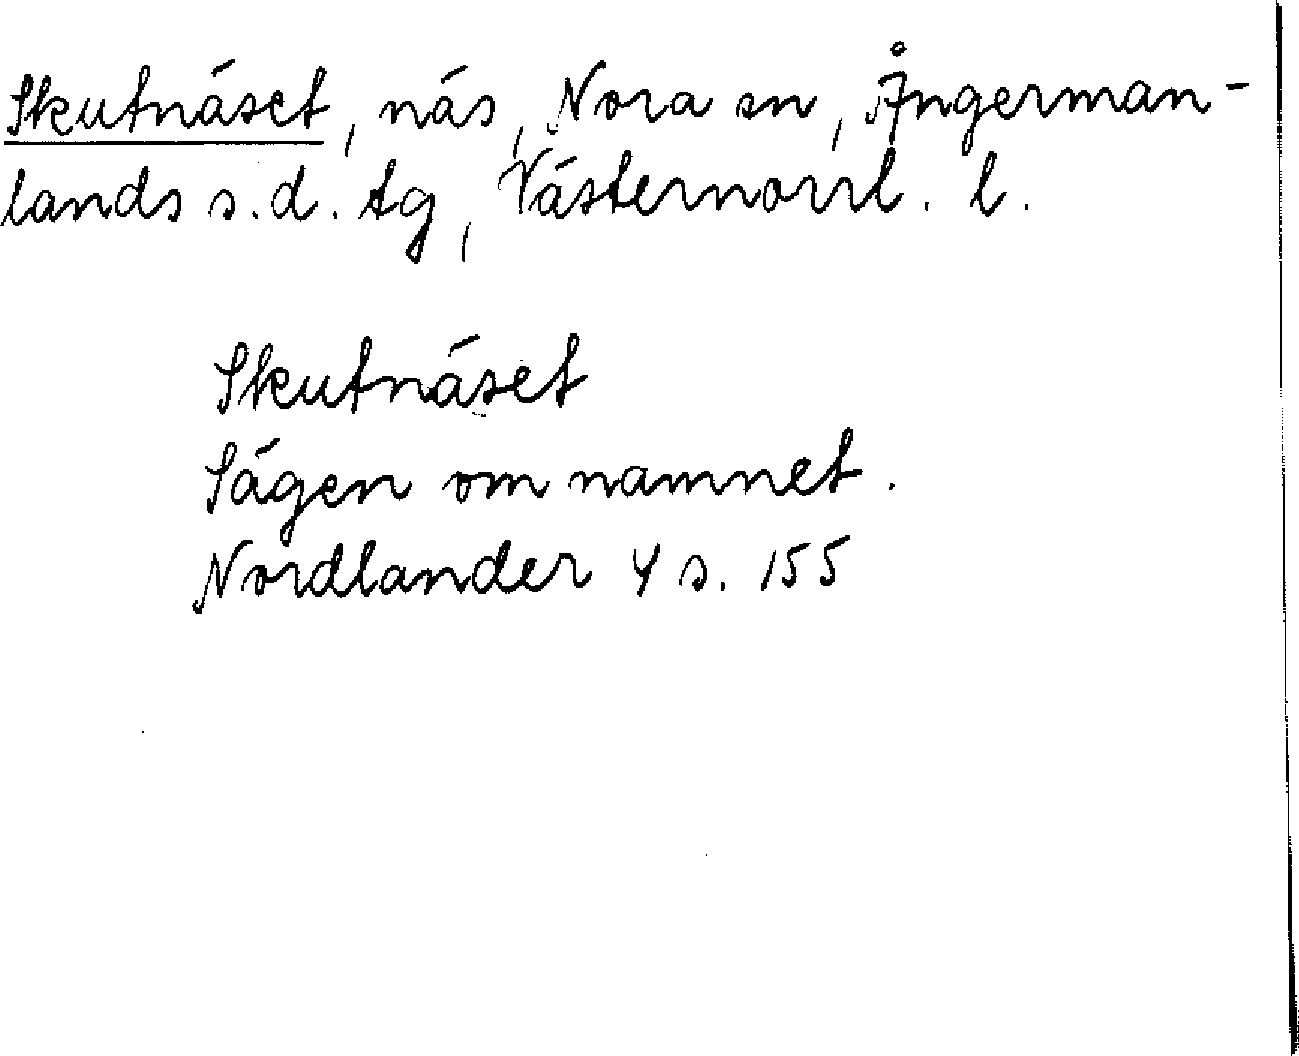 Skutnäset, näs, Nora sn, Ångerman-
lands s.d. tg, Västernorrl. l.
Skutnäset
Sägen om namnet.
Nordlander 4 s. 155